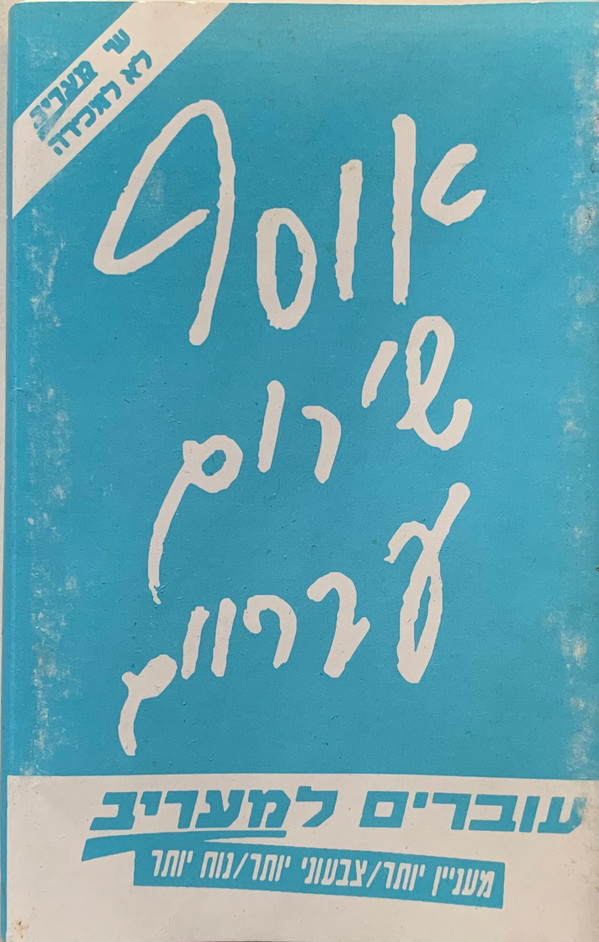 שי מעריב
לא למכירה
אוסף
שירים
עבריים
עוברים למעריב
מעניין יותר/צבעוני יותר/נוח יותר